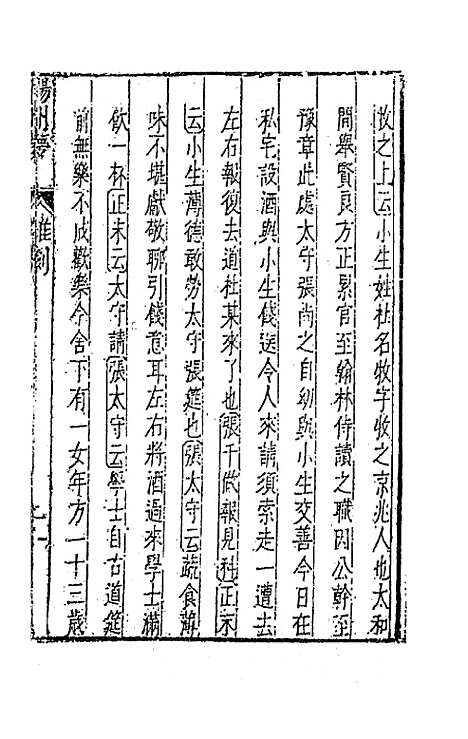 牧之上云小生姓杜名牧字牧之京兆人也太和
間舉賢良方正累官至翰林侍讀之職因公幹至
豫章此處太守張尚之自幼與小生交善今日在
私宅設酒與小生餞送令人來請須索走一遭去
左右報復去道杜某來了也張千做報見科正末
云小生薄德敢勞太守張筵也張太守云蔬食薄
味不堪獻敬聊引餞意耳左右將酒過來學士滿
飲一杯正末云太守請張太守云學士自古道筵
前無樂不成歡樂今舍下有一女年方一十三歲
揚州夢
雜劇